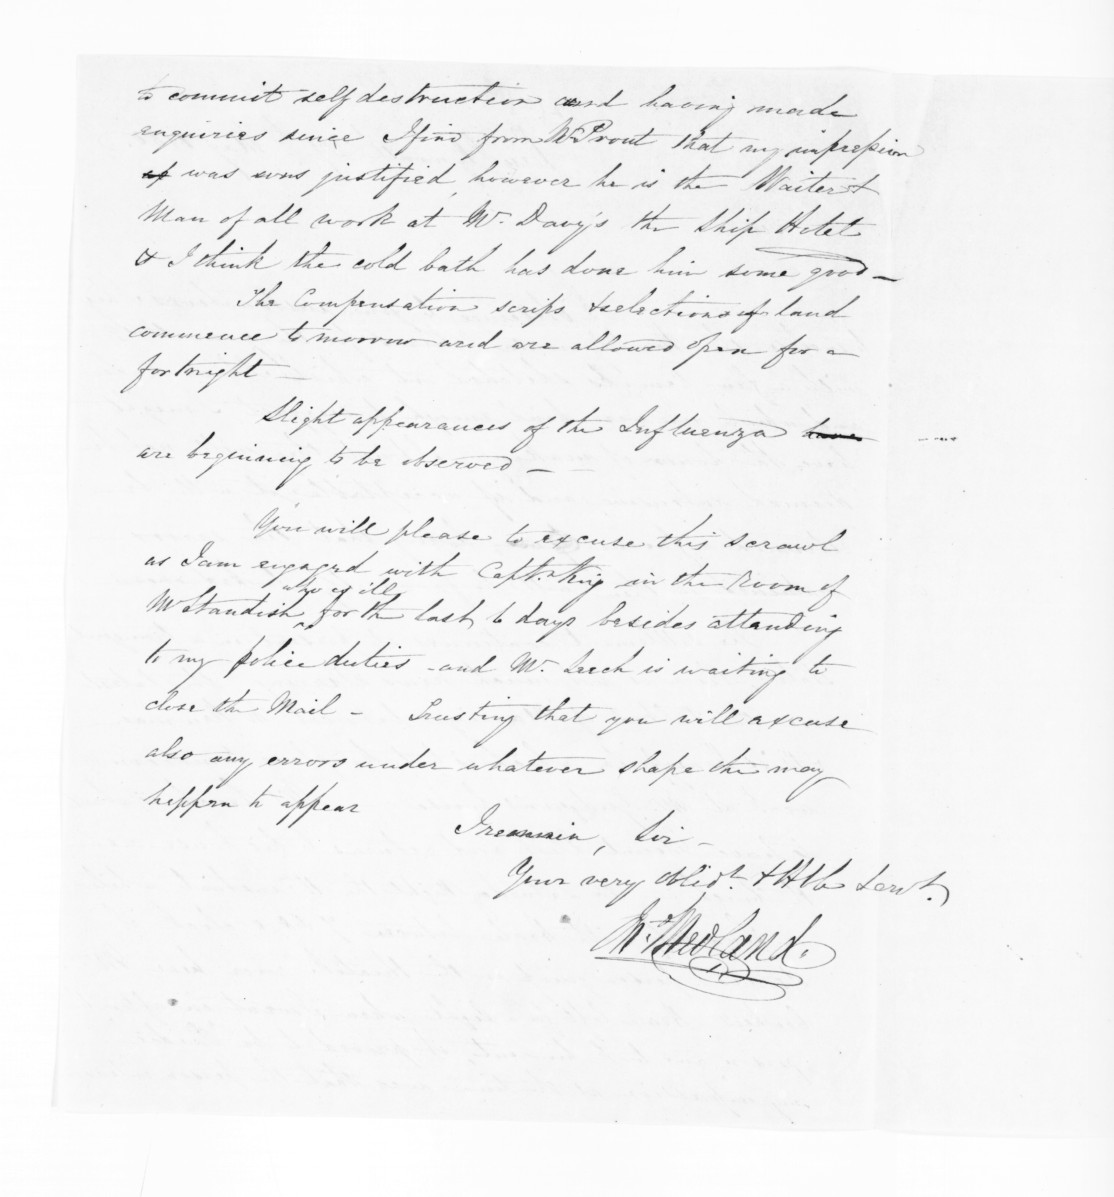 to commit self destruction and having made
enquiries since I find from Mr Prout that my impression
of was sons justified, however he is the Waiter &
Man of all work at Mr Davy's the Ship Hotel
& I think the cold bath has done him some good —
The Compensation scrips & selections of land
commence to morrow and are allowed open for a
fortnight —
Slight appearances of the Influenza have
are beginning to be observed —
You will please to excuse this scrawl
as I am engaged with Capt. King in the Room of
who is ill
Mr Standish for the last 6 days besides attending
to my police duties and Mr. Leech is waiting to
close the Mail — Trusting that you will excuse
also any errors under whatever shape the may
happen to appear
I remain, Sir —
Your very Obligd. & Hble Servt.
Newland.